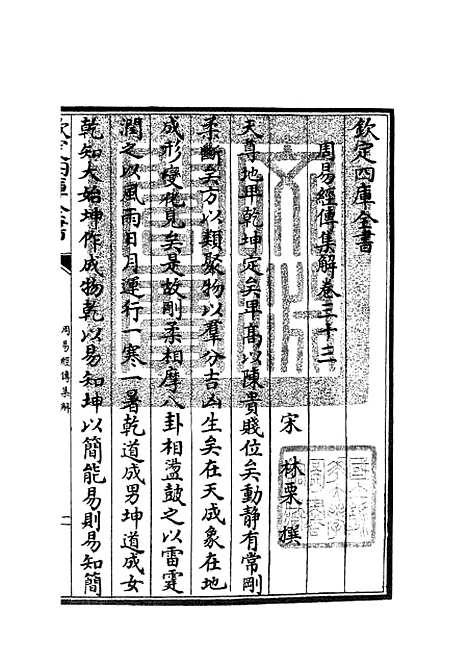 欽定四庫全書
周易經傳集解卷三十三
宋 林栗 撰
天尊地卑乾坤定矣卑高以陳貴賤位矣動靜有常剛
柔斷矣方以類聚物以羣分吉凶生矣在天成象在地
成形變化見矣是故剛柔相摩八卦相盪鼓之以雷霆
潤之以風雨日月運行一寒一暑乾道成男坤道成女
乾知大始坤作成物乾以易知坤以簡能易則易知簡
欽定四庫全書
周易經傳集解